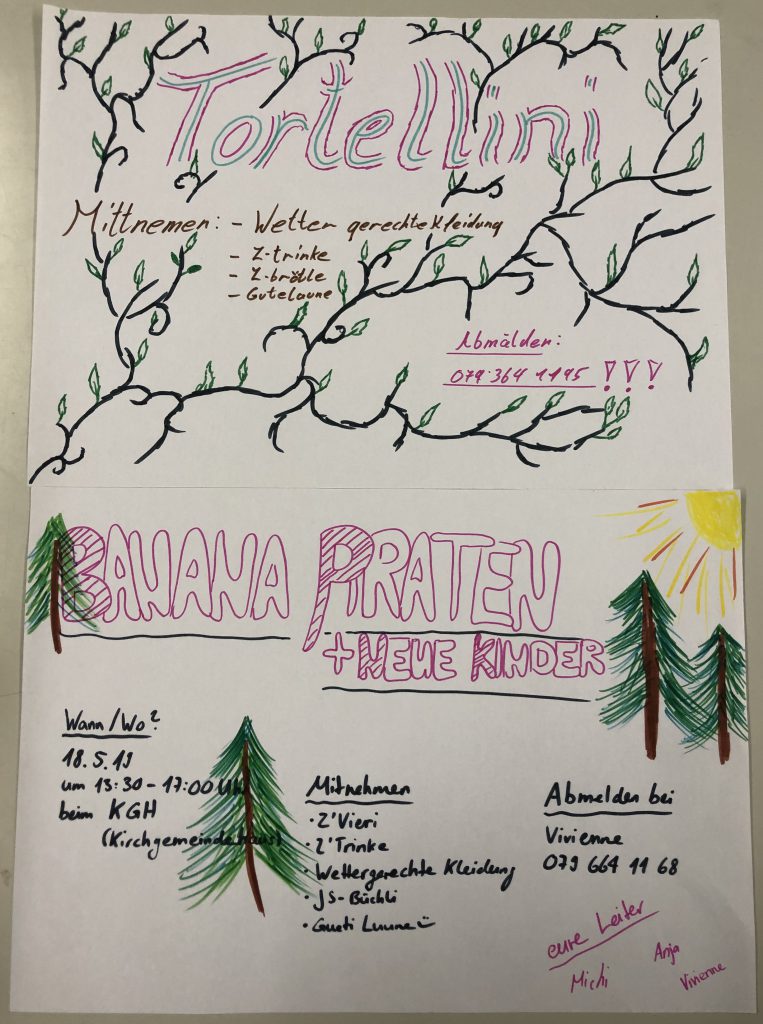 Tortellini
Mittnemen: - Wetter gerechte Kleidung
- Z-trinke
- Z-brötle
- Gutelaune
Abmälden:
079 364 1195 !!!
BANANA PIRATEN
+ NEUE KINDER
Wann/Wo?
18.5.19
um 13:30 - 17:00 Uhr
beim KGH
(Kirchgemeindehaus)
Mitnehmen
· Z'Vieri
· Z'Trinke
· Wettergerechte Kleidung
· JS-Büchli
· Gueti Luune
Abmelden bei
Vivienne
079 664 11 68
eure Leiter
Michi Anja Vivienne